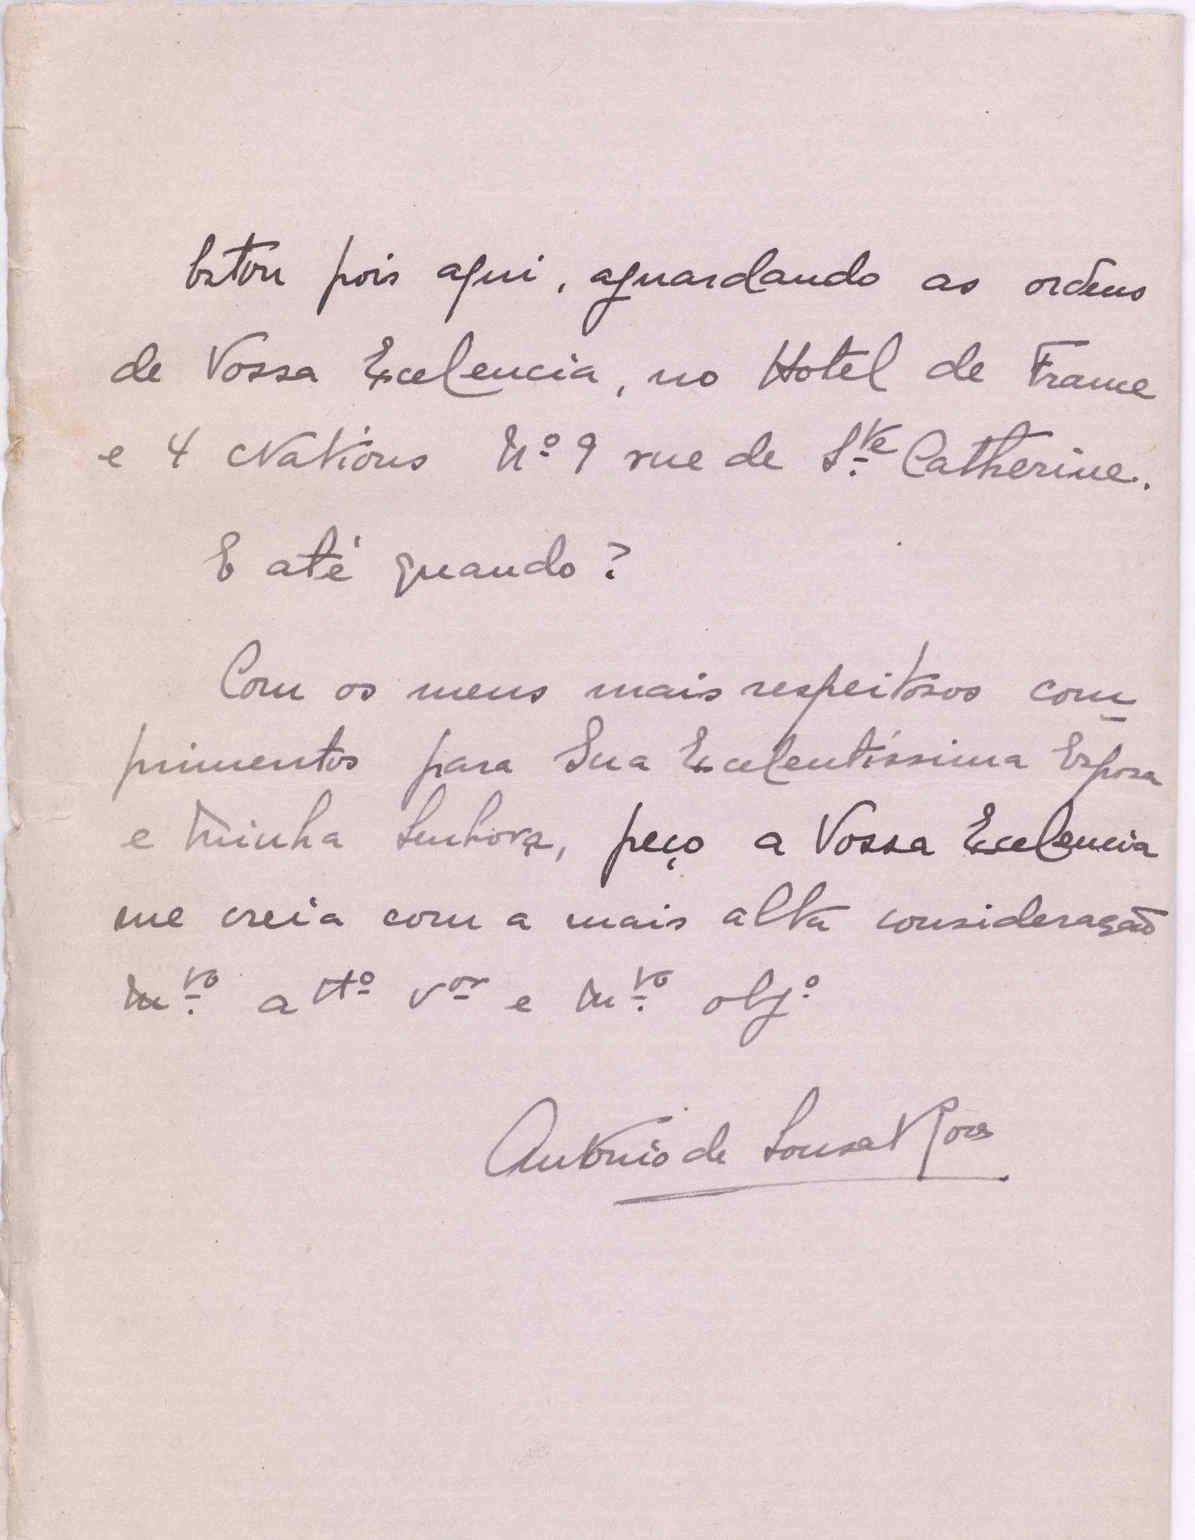 Estou pois aqui, aguardando as ordens
de Vossa Excelencia, no Hotel de France
e 4 Nations Nº 9 rue de Ste Catherine.
E até quando?
Com os meus mais respeitosos com-
primentos para Sua Excelentíssima Esposa
e Minha Senhora, peço a Vossa Excelencia
me creia com a mais alta consideração
Mto attº vor e Mto obgº
António de Sousa